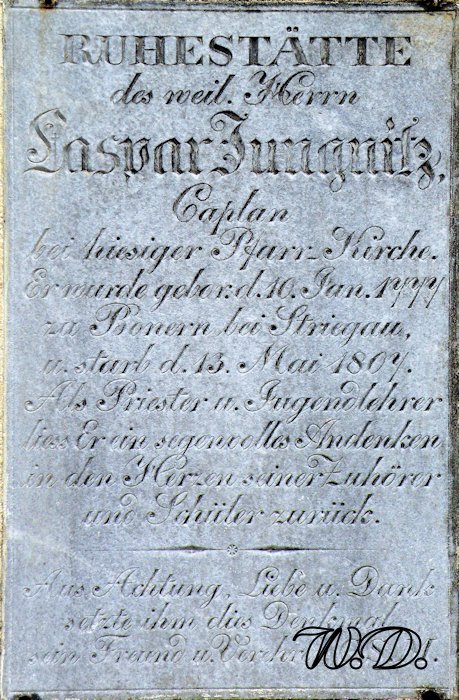 RUHESTÄTTE
des weil. Herrn
Caspar Jungnitz,
Caplan
bei hiesiger Pfarr-Kirche.
Er wurde gebor. d. 10. Jan. 1777
zu Ponern bei Striegau,
u. starb d. 13. Mai 1807.
Als Priester u. Jugendlehrer
liess Er ein segenvolles Andenken
in den Herzen seiner Zuhörer
und Schüler zurück.
Aus Achtung, Liebe u. Dank
setzte ihm dies Denkmal
sein Freund u.
W.D.